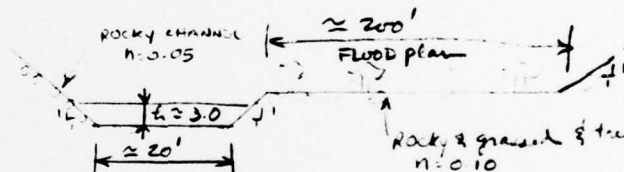 ≈ 200'
ROCKY CHANNEL
n=0.05
FLOOD plain
1
1
≈ 3.0
≈ 20'
Rocky & grassed & tre
n=0.10